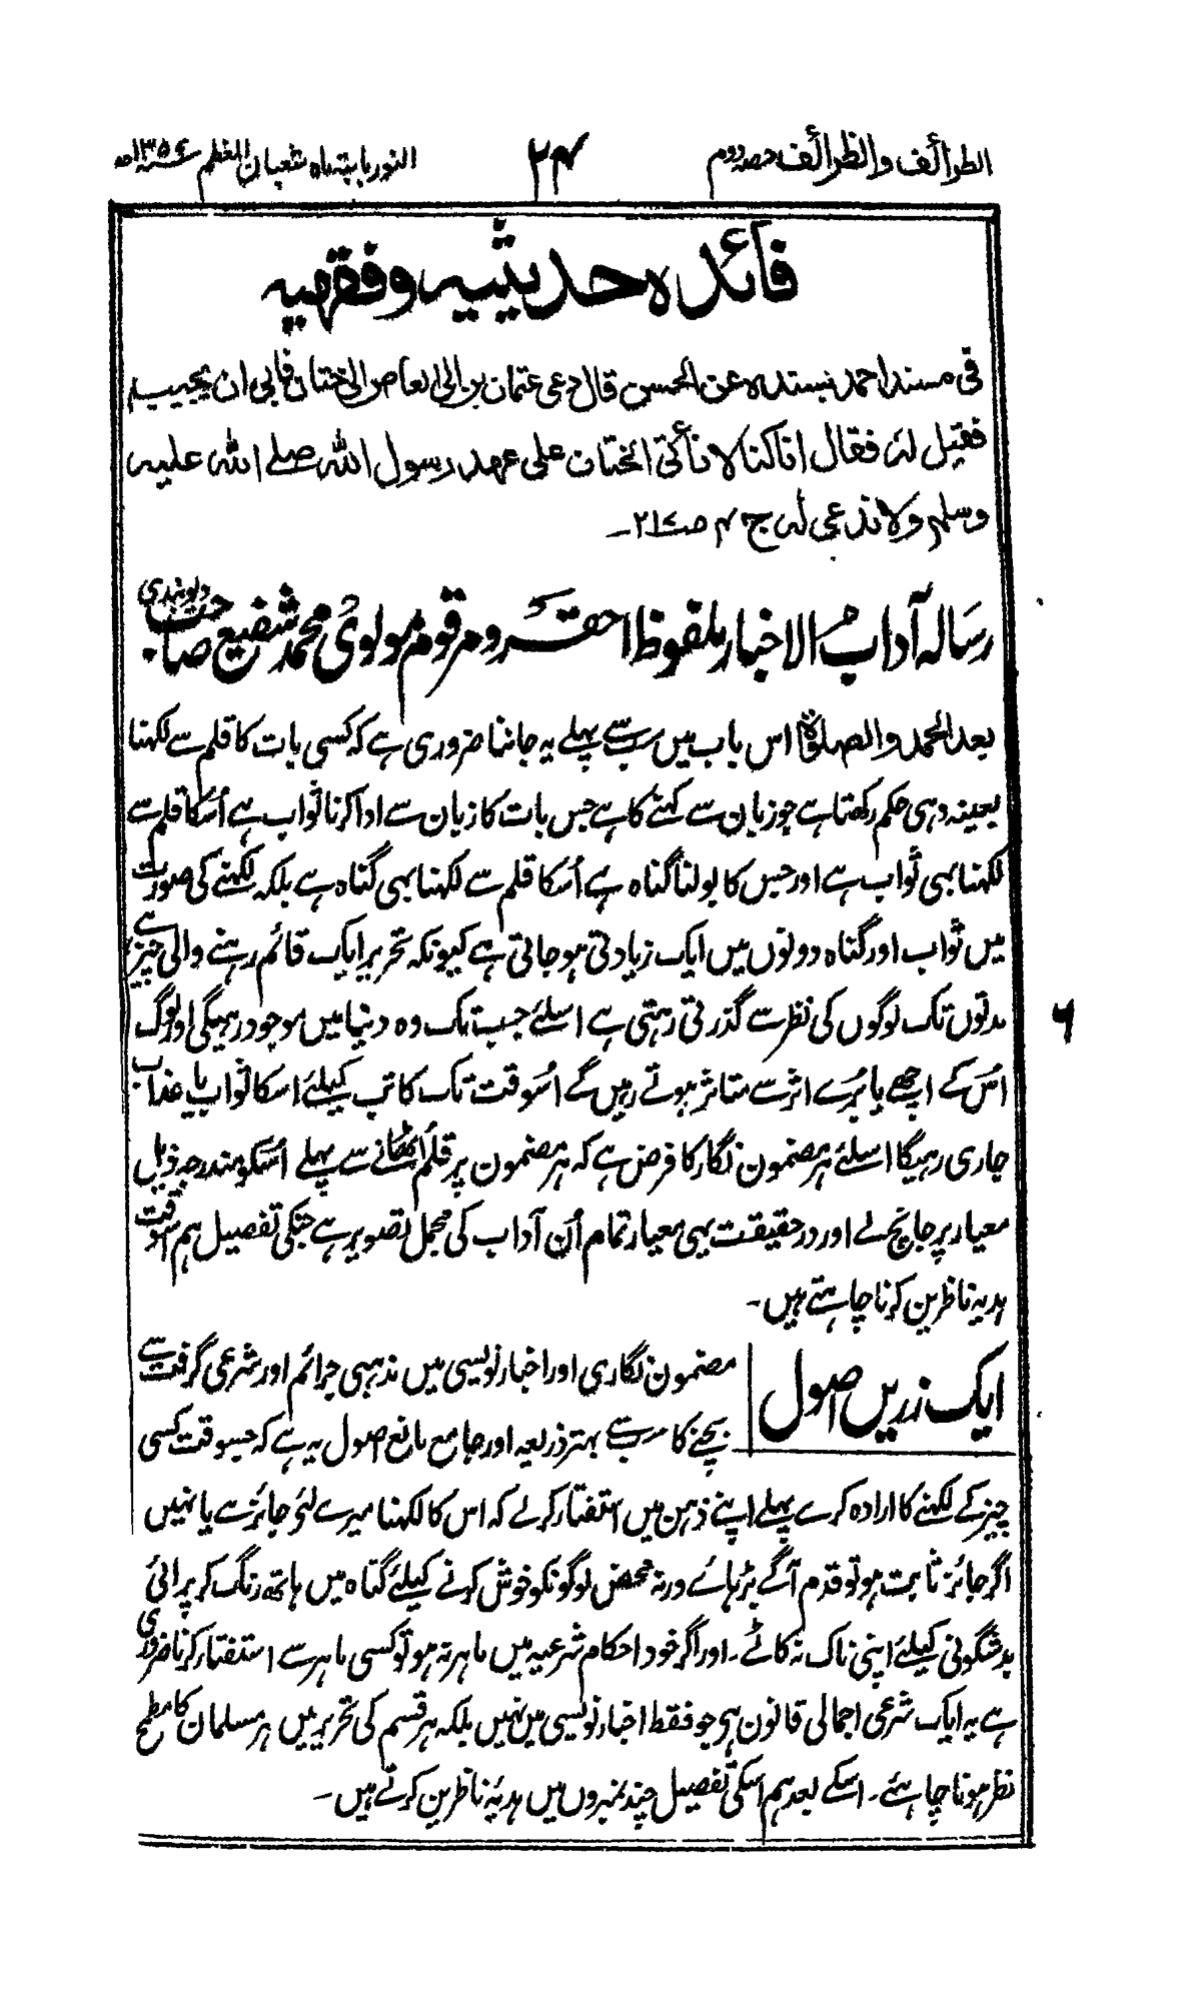 الطرائف والظرائف حصہ دوم
۲۴
النور بابتہ ماہ شعبان المعظم ۱۳۵۶ھ
فائدہ حدیثیہ وفقہیہ
فی مسند احمد بسندہ عن الحسن قال دعی عثمان بن ابی العاص الی ختان فابی ان یجیب
فقیل لہ فقال انا کنا لا نأتی الختان علی عہد رسول اللہ صلے اللہ علیہ
وسلم ولا ندعی لہ ج ۴ ص۲۱۷۔
رسالہ آداب الاخبار ملفوظ احقر و مرقوم مولوی محمد شفیع صاحب دیوبندی
بعد الحمد والصلوٰۃ اس باب میں سب سے پہلے یہ جاننا ضروری ہے کہ کسی بات کا قلم سے لکہنا
بعینہ وہی حکم رکھتا ہے جو زبان سے کہنے کا ہے جس بات کا زبان سے ادا کرنا ثواب ہے اُسکا قلم سے
لکہنا بھی ثواب ہے اور جس کا بولنا گناہ ہے اُسکا قلم سے لکہنا بھی گناہ ہے بلکہ لکہنے کی صورت
میں ثواب اور گناہ دونوں میں ایک زیادتی ہو جاتی ہے کیونکہ تحریر ایک قائم رہنے والی چیز ہے
مدتوں تک لوگوں کی نظر سے گذرتی رہتی ہے اسلئے جب تک وہ دنیا میں موجود رہیگی اور لوگ
۶
اُس کے اچھے یا بُرے اثر سے متاثر ہوتے رہیں گے اُسوقت تک کاتب کیلئے اسکا ثواب یا عذاب
جاری رہیگا اسلئے ہر مضمون نگار کا فرض ہے کہ ہر مضمون پر قلم اُٹھانے سے پہلے اُسکو مندرجہ ذیل
معیار پر جانچ لے اور در حقیقت یہی معیار تمام اُن آداب کی مجمل تصویر ہے جنکی تفصیل ہم اسوقت
ہدیہ ناظرین کرنا چاہتے ہیں۔
ایک زریں اصول
مضمون نگاری اور اخبار نویسی میں مذہبی جرائم اور شرعی گرفت سے
بچنے کا سب سے بہتر ذریعہ اور جامع مانع اصول یہ ہے کہ جسوقت کسی
چیز کے لکہنے کا ارادہ کرے پہلے اپنے ذہن میں استفتار کر لے کہ اس کا لکہنا میرے لئے جائز ہے یا نہیں
اگر جائز ثابت ہو تو قدم آگے بڑہائے ورنہ محض لوگونکو خوش کرنے کیلئے گناہ میں ہاتھ رنگ کر پرائی
بدشگونی کیلئے اپنی ناک نہ کاٹے۔ اور اگر خود احکام شرعیہ میں ماہر نہ ہو تو کسی ماہر سے استفتار کرنا ضروری
ہے یہ ایک شرعی اجمالی قانون ہی جو فقط اخبار نویسی میں نہیں بلکہ ہر قسم کی تحریر میں ہر مسلمان کا مطمح
نظر ہونا چاہئے۔ اسکے بعد ہم اسکی تفصیل چند نمبروں میں ہدیۂ ناظرین کرتے ہیں۔